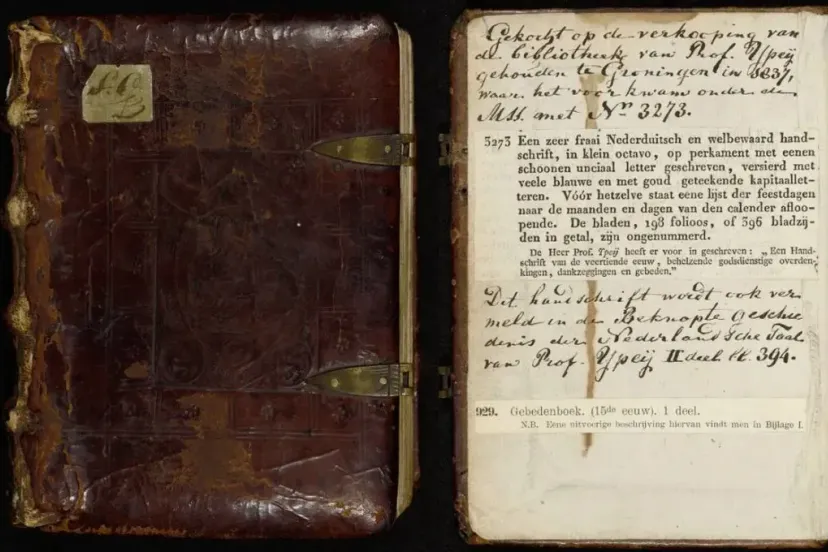 Gekocht op de verkooping van
de bibliotheek van Prof. Ypeij
gehouden te Groningen in 1837,
waar het voorkwam onder de
Mss. met No 3273.
3273 Een zeer fraai Nederduitsch en welbewaard hand-
schrift, in klein octavo, op perkament met eenen
schoonen unciaal letter geschreven, versierd met
veele blauwe en met goud geteekende kapitaallet-
teren. Vóór hetzelve staat eene lijst der feestdagen
naar de maanden en dagen van den calender afloo-
pende. De bladen, 198 folioos, of 396 bladzij-
den in getal, zijn ongenummerd.
De Heer Prof. Ypeij heeft er voor in geschreven: „Een Hand-
schrift van de veertiende eeuw, behelzende godsdienstige overden-
kingen, dankzeggingen en gebeden."
Dit handschrift wordt ook ver
meld in de Beknopte Geschie
denis der Nederlandsche Taal
van Prof. Ypeij II deel bl. 394.
929. Gebedenboek. (15de eeuw). 1 deel.
N.B. Eene uitvoerige beschrijving hiervan vindt men in Bijlage I.